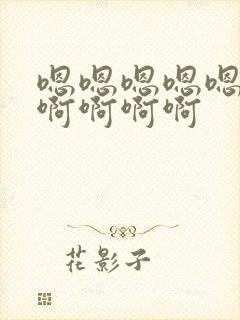 嗯嗯嗯嗯嗯
啊啊啊啊
花影子